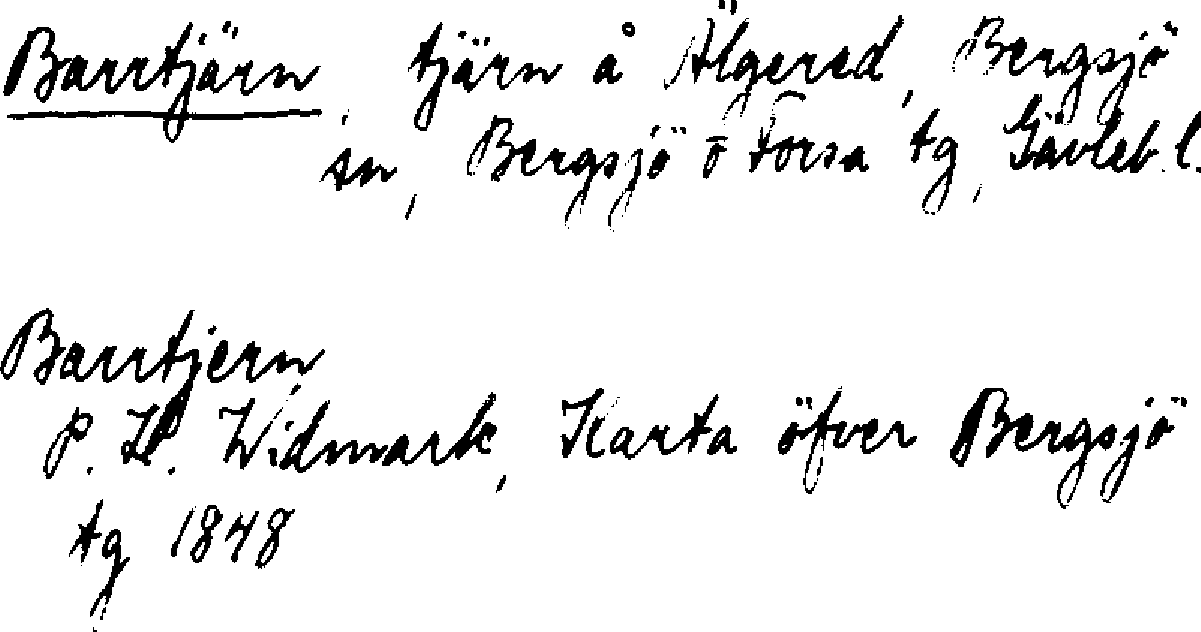 Barrtjärn, tjärn å Älgered, Bergsjö
sn, Bergsjö o Forsa tg, Gävleb. l.
Barrtjern
P. H. Widmark, Karta öfver Bergsjö
tg 1848